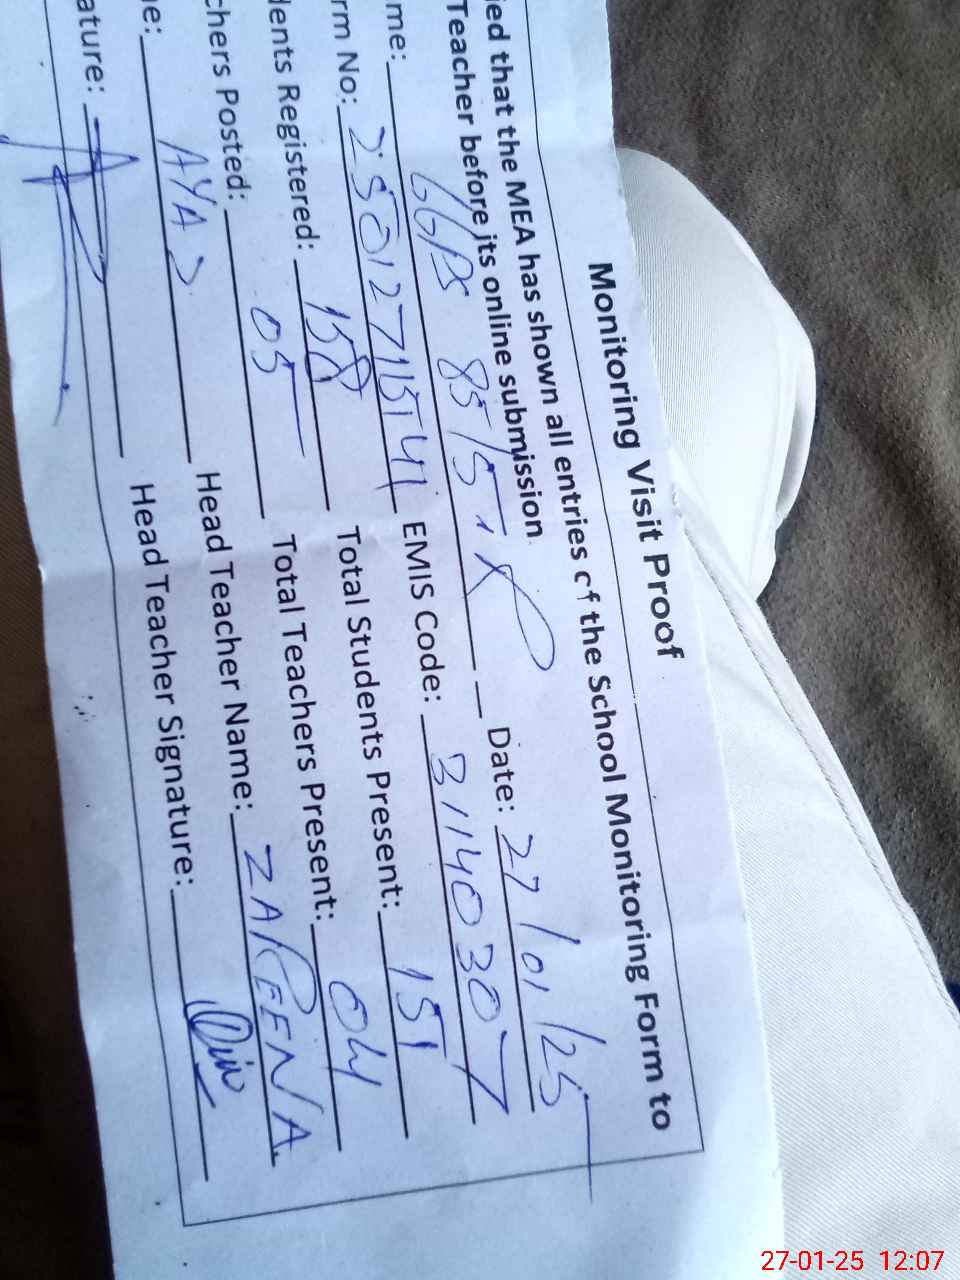 Monitoring Visit Proof
ied that the MEA has shown all entries of the School Monitoring Form to
Teacher before its online submission.
me: GGPS 85/5-R Date: 27/01/25
rm No: 25012711541 EMIS Code: 31140307
dents Registered: 158 Total Students Present: 151
chers Posted: 05 Total Teachers Present: 04
e: AYAD Head Teacher Name: ZAREENA.
ature: Head Teacher Signature:
27-01-25 12:07